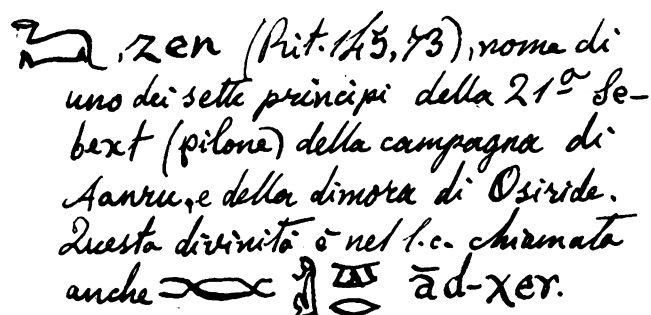 , zen (Rit. 145, 73), nome di
uno dei sette principi della 21ª Se-
bext (pilone) della campagna di
Aanru, e della dimora di Osiride.
Questa divinità è nel l.c. chiamata
anche ād-χer.